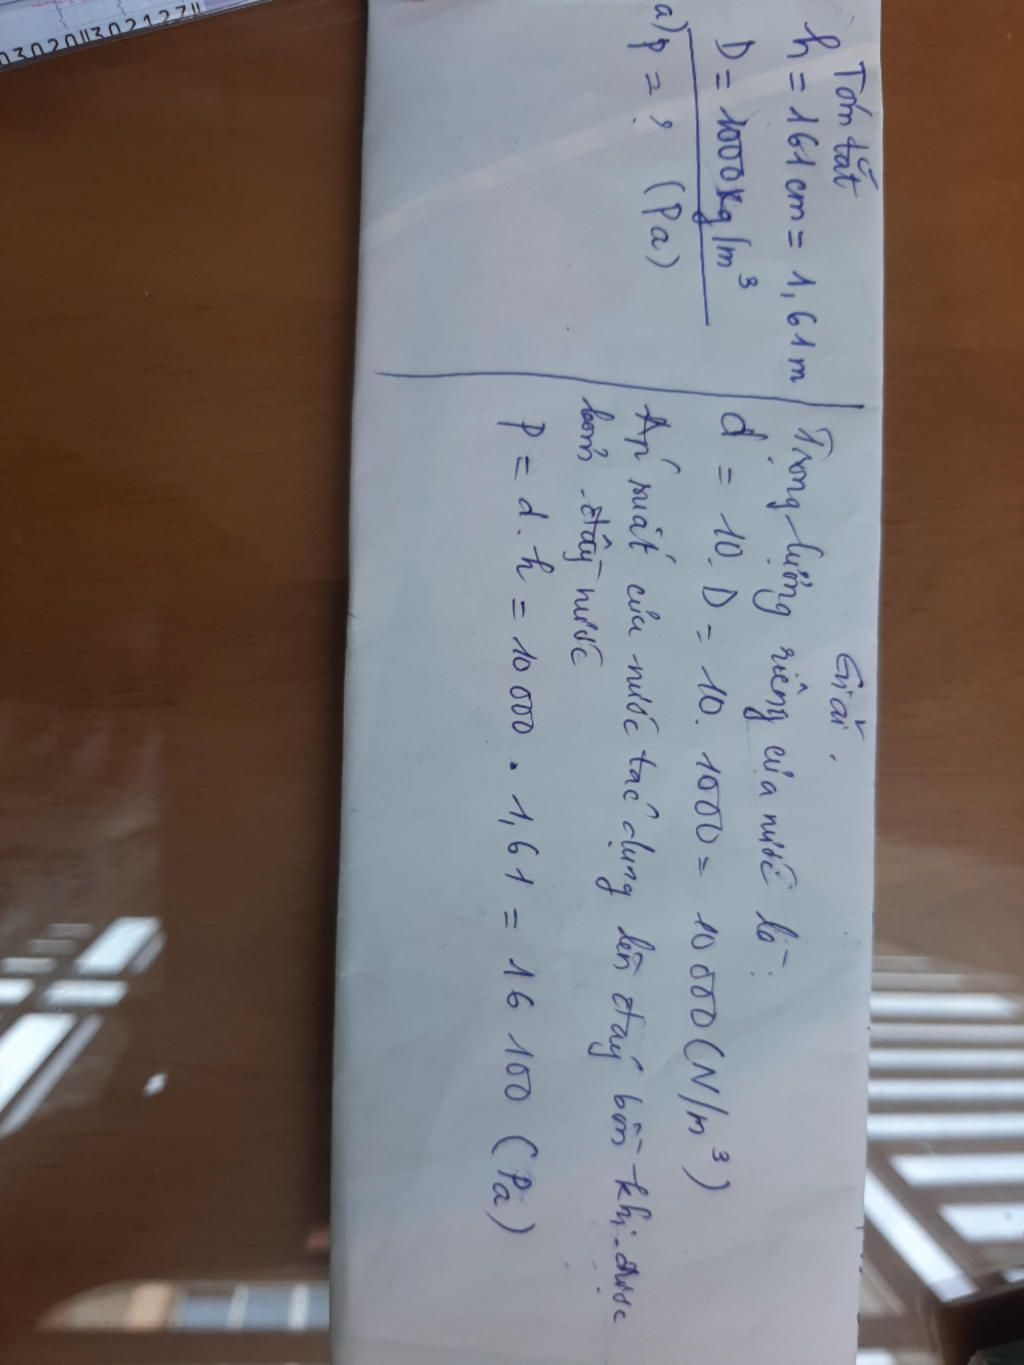 030201130212711
Tóm tắt
h = 161 cm = 1,61 m
D = 1000kg/m³
a) p = ? (Pa)
Giải.
Trọng lượng riêng của nước là:
d = 10. D = 10. 1000 = 10 000 (N/m³)
Áp suất của nước tác dụng lên đáy bồn khi được
bơm đầy nước
p = d. h = 10 000 . 1,61 = 16 100 (Pa)